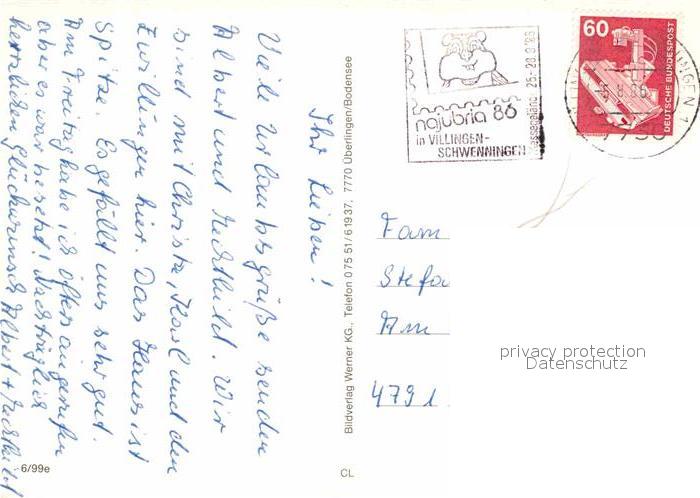 Ihr Lieben!
Viele Urlaubsgrüße senden
Albert und Mechthild. Wir
sind mit Christa, Karl und den
Zwillingen hier. Das Haus ist
Spitze. Es gefällt uns sehr gut.
Am Freitag habe ich öfters angerufen
aber es war besetzt! Nachträglich
herzlichen Glückwunsch Albert + Mechthild
6/99e
CL
Bildverlag Werner KG., Telefon 075 51/61937, 7770 Überlingen/Bodensee
najubria 86
in VILLINGEN-
SCHWENNINGEN
Messegelände 25.-28.9.86
60
DEUTSCHE BUNDESPOST
Fam
Stefa
Am
4791
privacy protection
Datenschutz